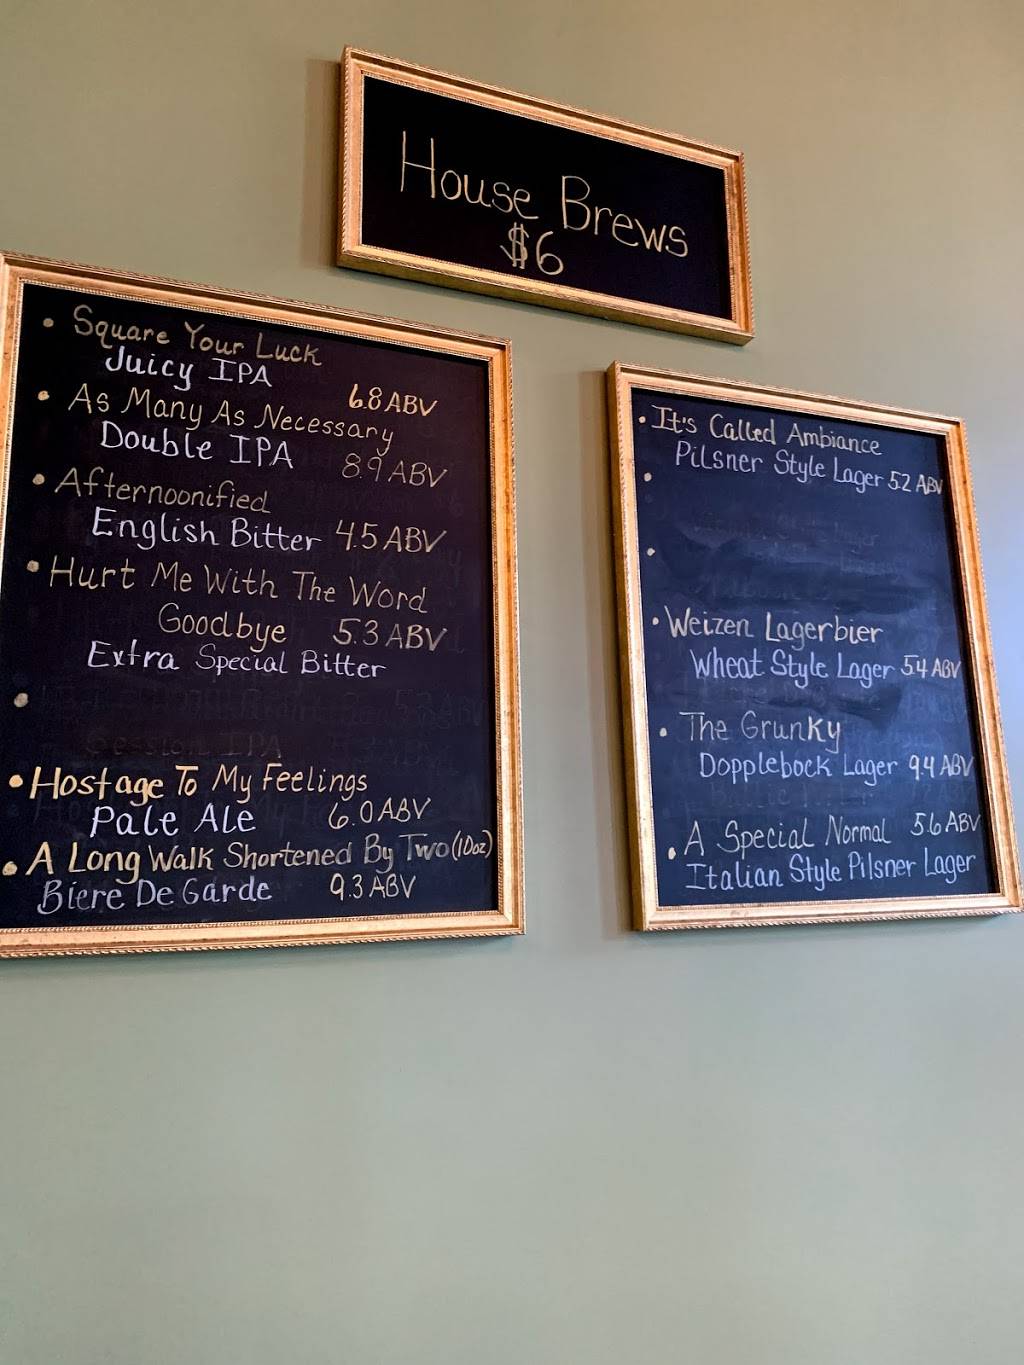 House Brews
$6
• Square Your Luck
Juicy IPA 6.8 ABV
• As Many As Necessary
Double IPA 8.9 ABV
• Afternoonified
English Bitter 4.5 ABV
• Hurt Me With The Word
Goodbye 5.3 ABV
Extra Special Bitter
•
Session IPA
• Hostage To My Feelings
Pale Ale 6.0 ABV
• A Long Walk Shortened By Two (10oz)
Biere De Garde 9.3 ABV
• It's Called Ambiance
Pilsner Style Lager 5.2 ABV
•
•
• Weizen Lagerbier
Wheat Style Lager 5.4 ABV
• The Grunky
Dopplebock Lager 9.4 ABV
• A Special Normal 5.6 ABV
Italian Style Pilsner Lager